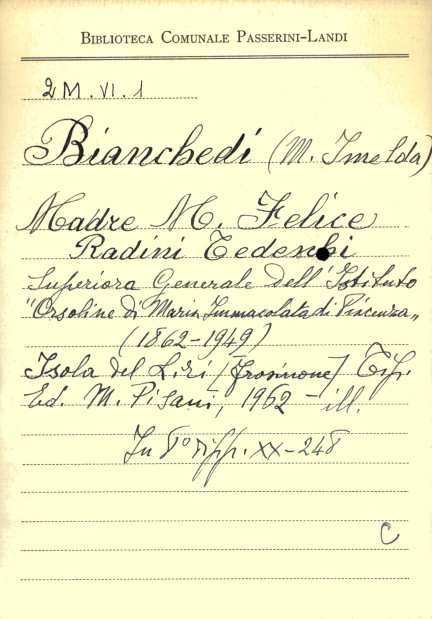 BIBLIOTECA COMUNALE PASSERINI-LANDI
2M.VI.1
Bianchedi (M. Imelda)
Madre M. Felice
Radini Tedeschi
Superiora Generale dell'Istituto
"Orsoline di Maria Immacolata di Piacenza"
(1862-1949)
Isola del Liri [Frosinone] Tip.
Ed. M. Pisani, 1962 - ill.
In 8° pp. XX-248
C